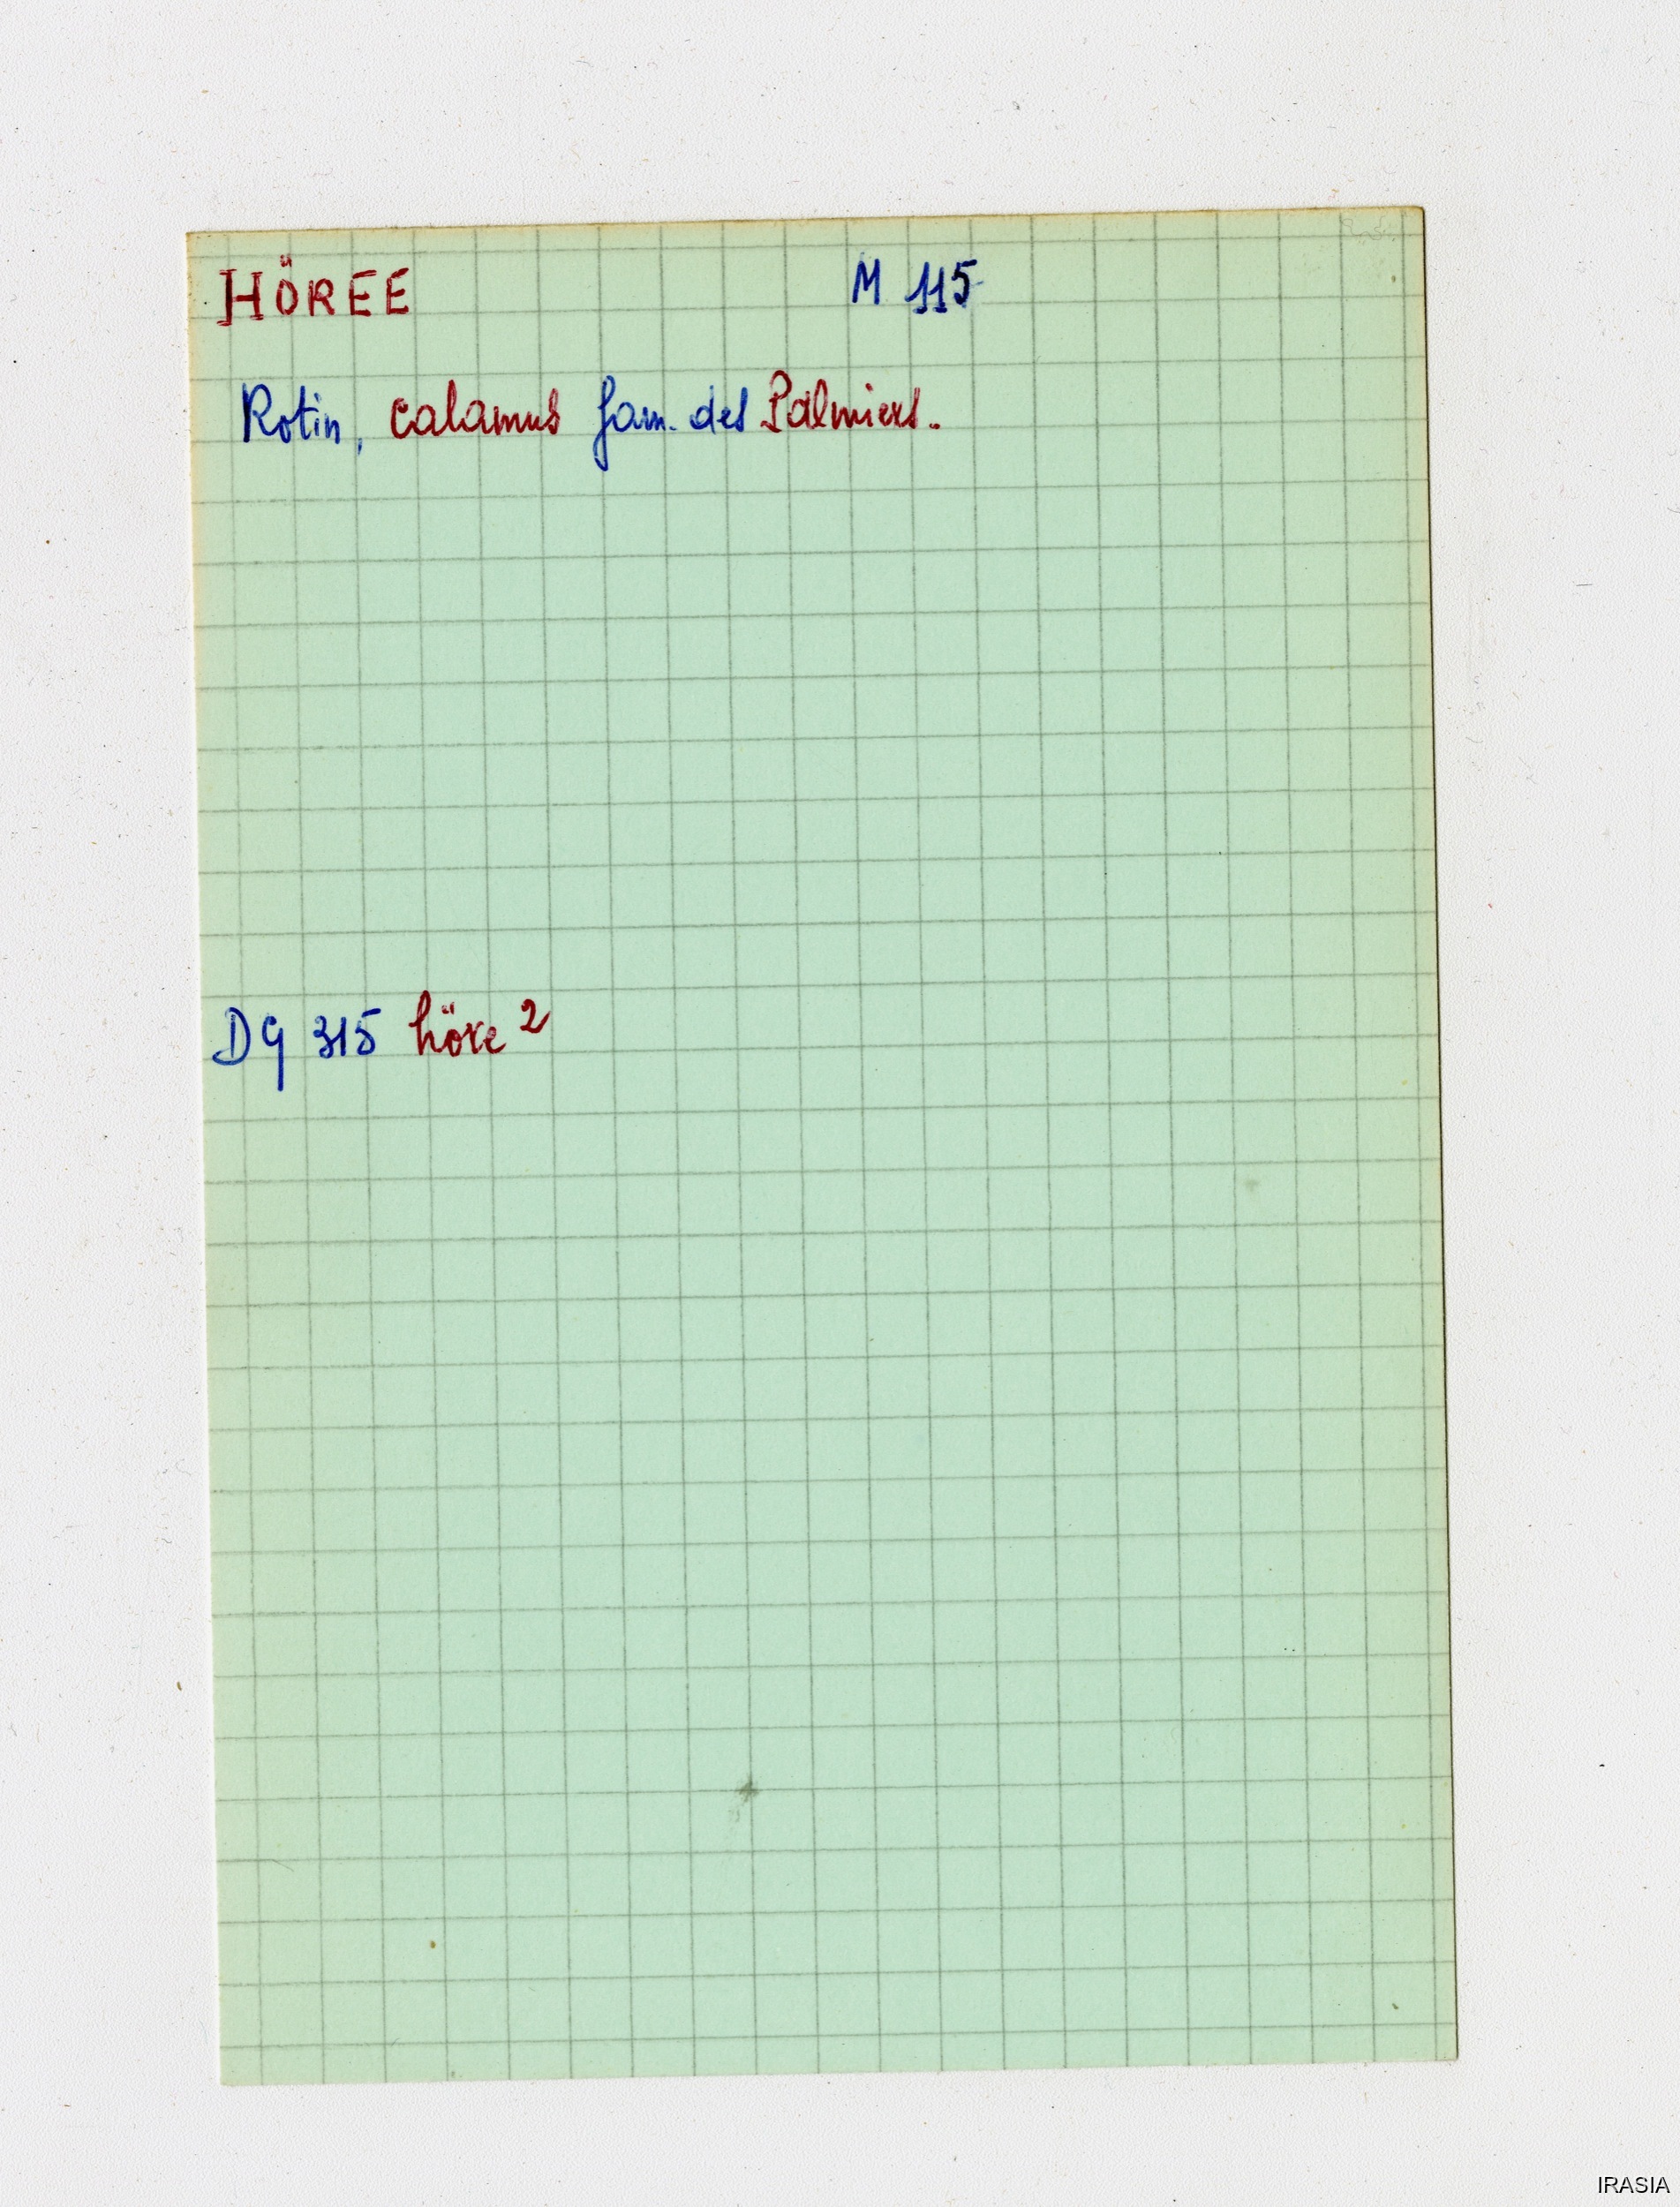 HÖREE M 115
Rotin, calamus fam. des Palmiers.
DG 315 höre 2
IRASIA